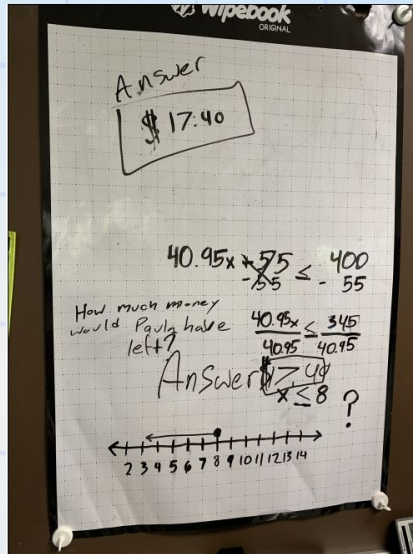 Wipebook
ORIGINAL
Answer
$ 17:40
40.95x + 55 ≤ 400
-55 - 55
How much money
would Paula have
left?
40.95x ≤ 345
40.95 40.95
Answer $17,40
x ≤ 8 ?
2 3 4 5 6 7 8 9 10 11 12 13 14